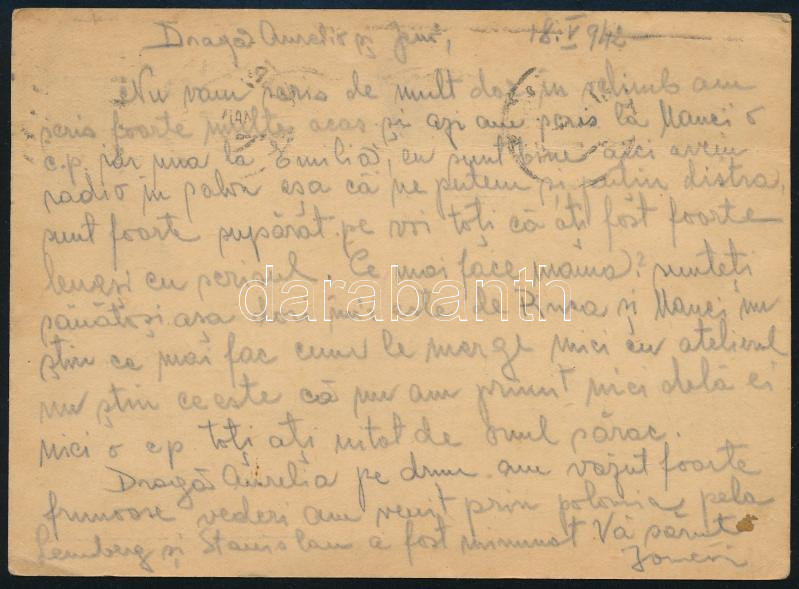 Dragă Aurelio și Jeni, 18.V 942
Nu vam scris de mult dor in schimb am
scris foarte multe acas și azi am scris la Manci o
c.p, iar una la Emilia, eu sunt bine aici avem
radio in salon așa că ne putem și puțin distra,
sunt foarte supărat pe voi toți că ați fost foarte
lenși cu scrisul. Ce mai face mama? sunteți
sănătoși așa dor imi este de Ruca și Manci nu
știu ce mai fac cum le merge nici cu atelierul
nu știu ce este că nu am primit nici dela ei
nici o c p toți ați uitat de omul sărac.
Dragă Aurelia pe drum am văzut foarte
frumoase vederi am venit prin polonia pela
Lemberg și Stanislau a fost minunat Vă sărut
darabanth